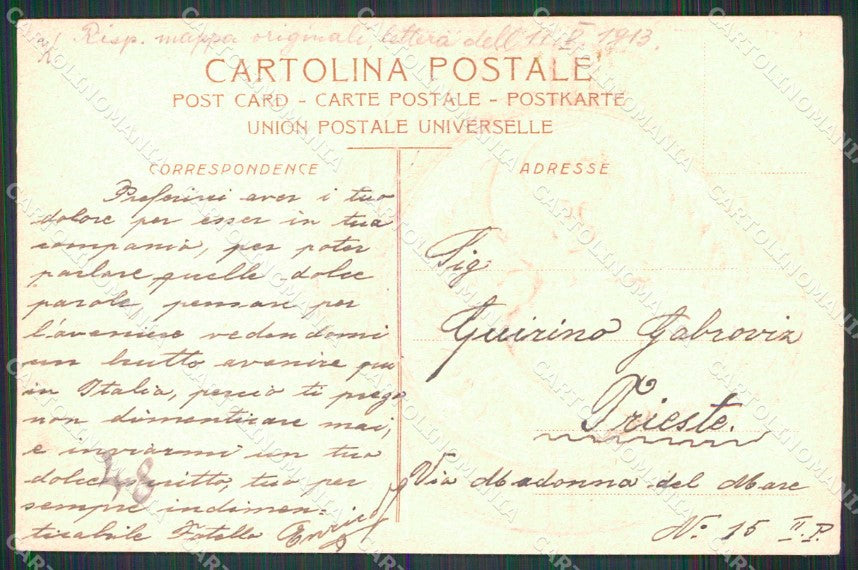 Risp. mappa originali, lettera dell' 11 1913.
CARTOLINA POSTALE
POST CARD - CARTE POSTALE - POSTKARTE
UNION POSTALE UNIVERSELLE
CORRESPONDENCE
Preferirei aver i tuo
dolore per esser in tua
compania, per poter
parlare quelle dolce
parole, pensare per
l'avenire vedendomi
un brutto avenire qui
in Italia, perciò ti prego
non dimenticare mai,
e inviarmi un tuo
dolce scritto, tuo per
sempre indimen=
ticabile Fratello Enrico
48
ADRESSE
Sig
Guirino Gabroviz
Trieste.
Via Madonna del Mare
No 15 II P.
CARTOLINOMANIA